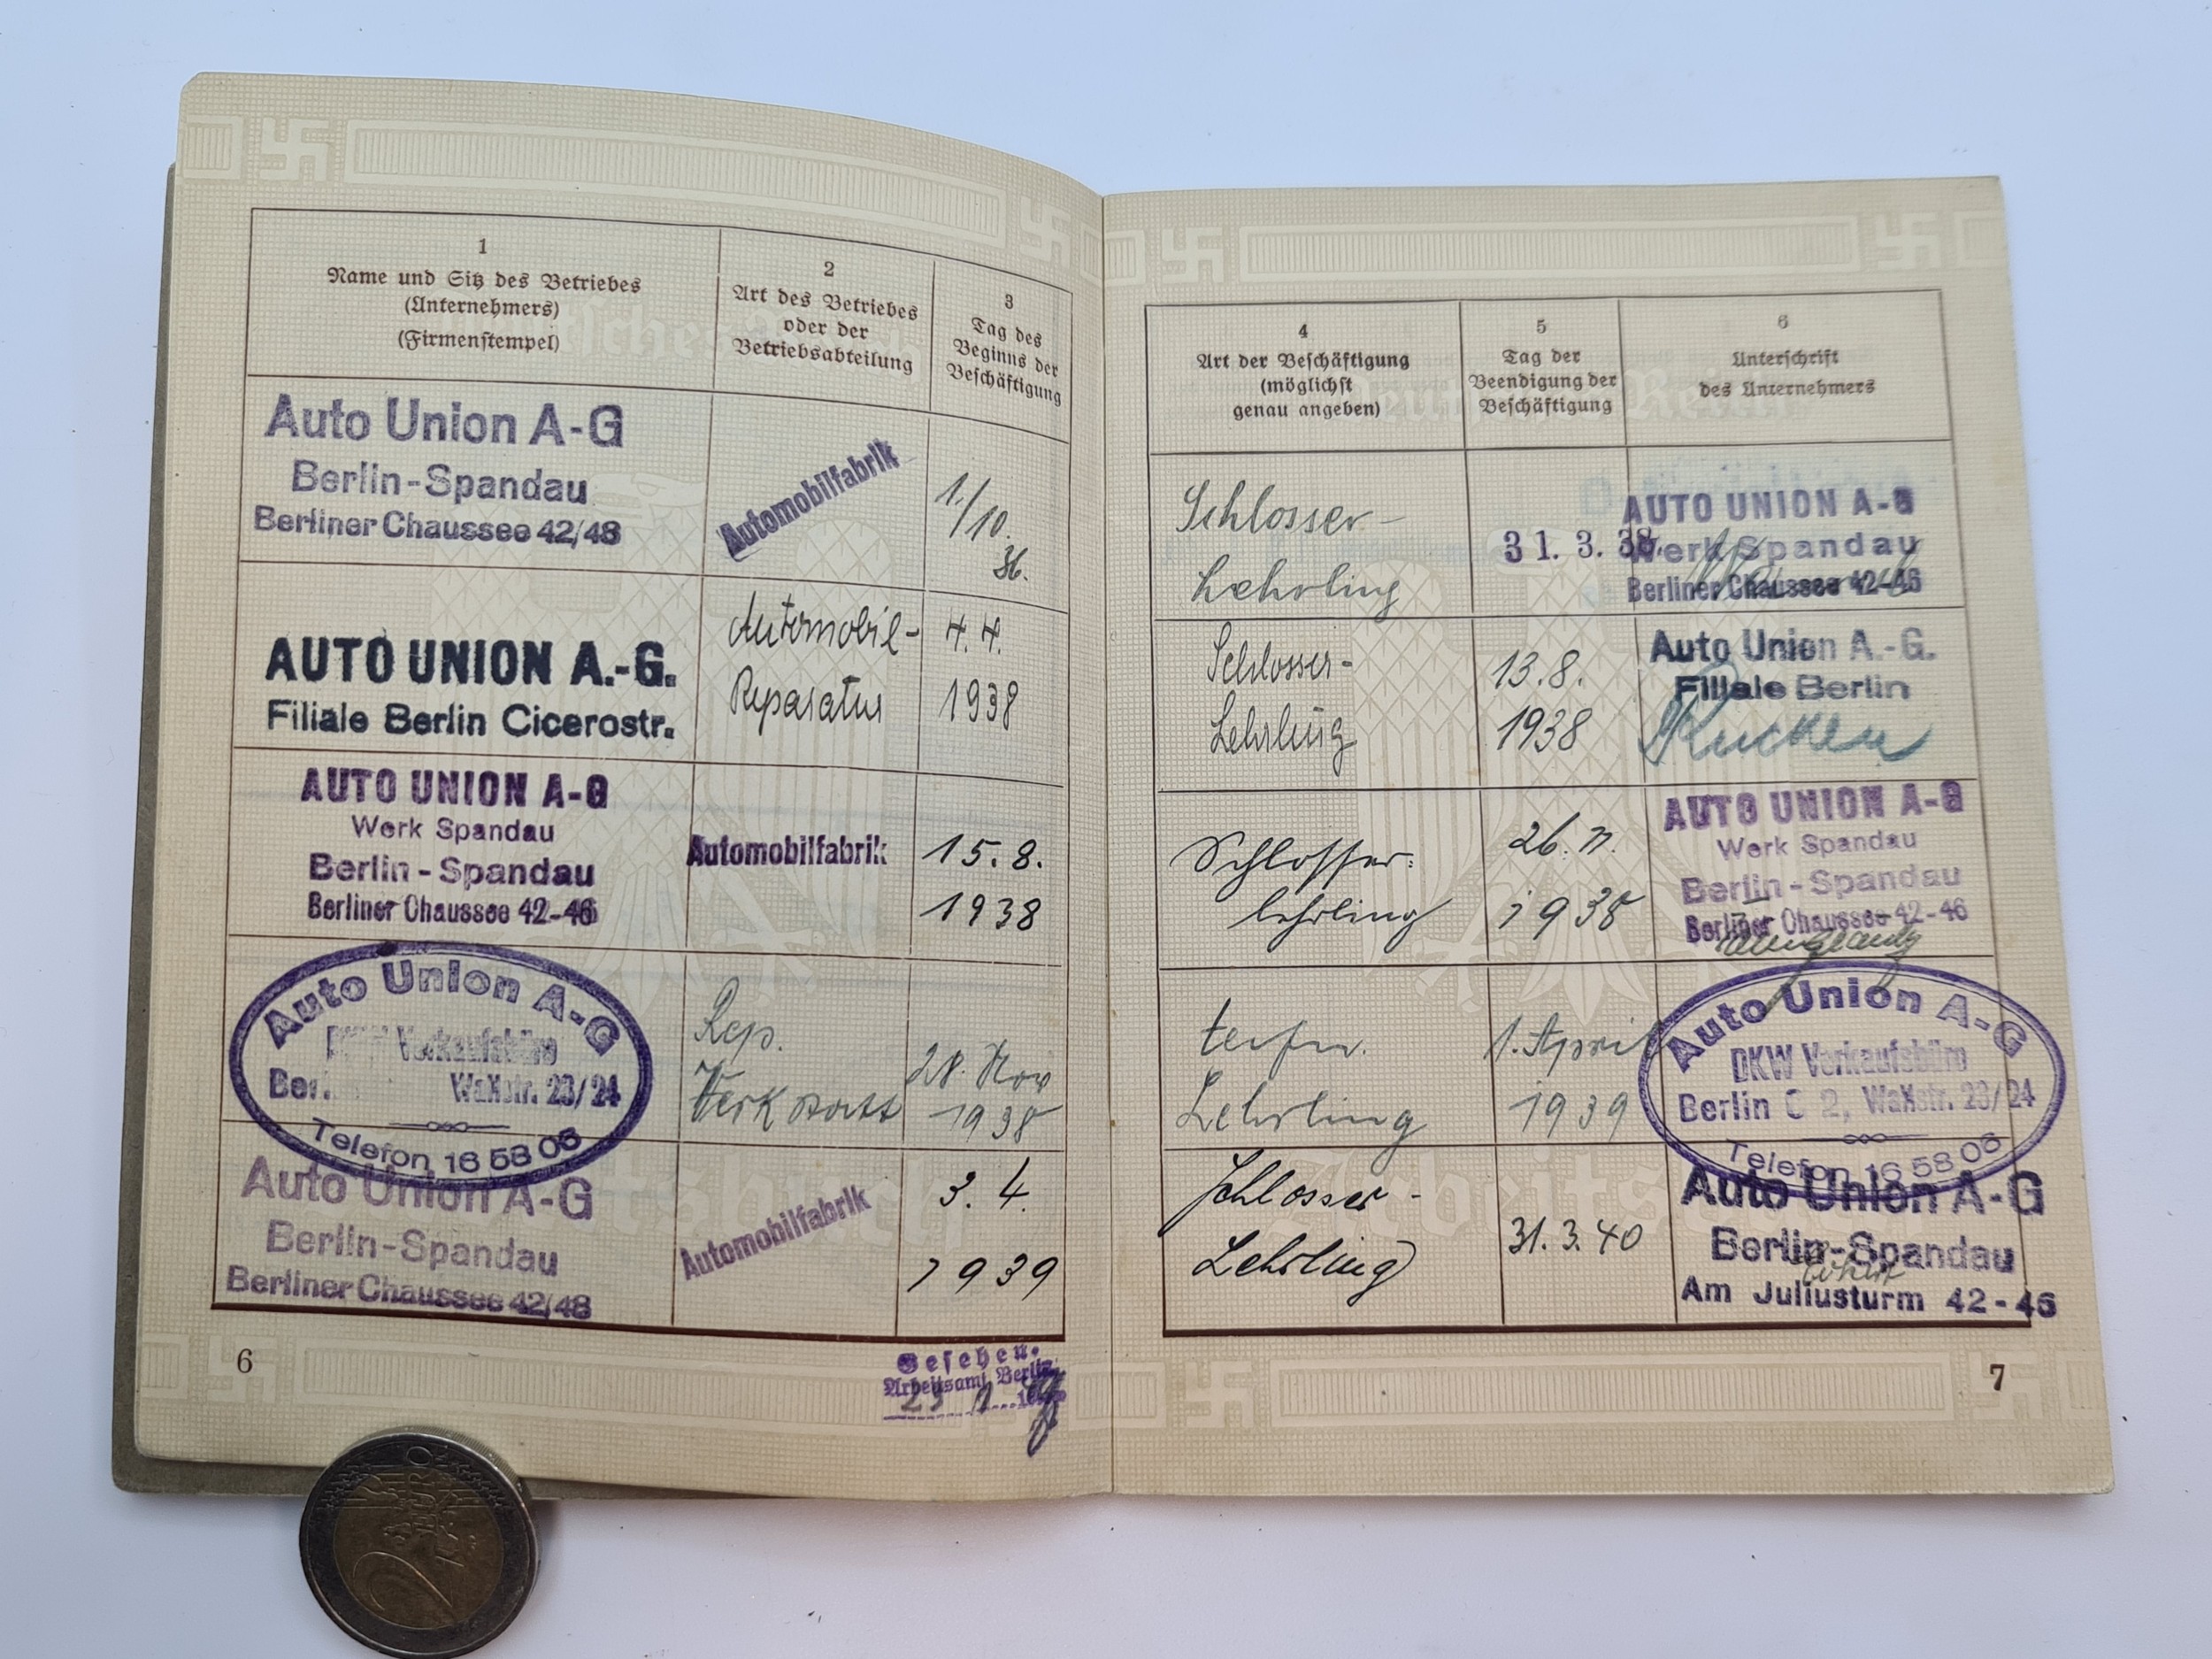 1
Name und Sitz des Betriebes
(Unternehmers)
(Firmenstempel)
2
Art des Betriebes
oder der
Betriebsabteilung
3
Tag des
Beginns der
Beschäftigung
Auto Union A-G
Berlin-Spandau
Berliner Chaussee 42/48
Automobilfabrik
1./10.
36.
AUTO UNION A.-G.
Filiale Berlin Cicerostr.
Automobil-
Reparatur
4. 4.
1938
AUTO UNION A-G
Werk Spandau
Berlin - Spandau
Berliner Chaussee 42-46
Automobilfabrik
15. 8.
1938
Auto Union A-G
DKW Verkaufsbüro
Ber. Wallstr. 23/24
Telefon 16 58 06
Rep.
Werkstatt
28. Nov
1938
Auto Union A-G
Berlin-Spandau
Berliner Chaussee 42/48
Automobilfabrik
3. 4.
1939
6
Gesehen.
Arbeitsamt Berlin
4
Art der Beschäftigung
(möglichst
genau angeben)
5
Tag der
Beendigung der
Beschäftigung
6
Unterschrift
des Unternehmers
Schlosser-
Lehrling
31. 3. 38.
AUTO UNION A-G
Werk Spandau
Berliner Chaussee 42-46
Schlosser-
Lehrling
13. 8.
1938
Auto Union A.-G.
Filiale Berlin
Schlosser-
lehrling
26. 11.
1938
AUTO UNION A-G
Werk Spandau
Berlin - Spandau
Berliner Chaussee 42-46
Lehrling
1. April
1939
Auto Union A-G
DKW Verkaufsbüro
Berlin C 2, Wallstr. 23/24
Telefon 16 58 06
Schlosser-
Lehrling
31. 3. 40
Auto Union A-G
Berlin-Spandau
Am Juliusturm 42-46
7